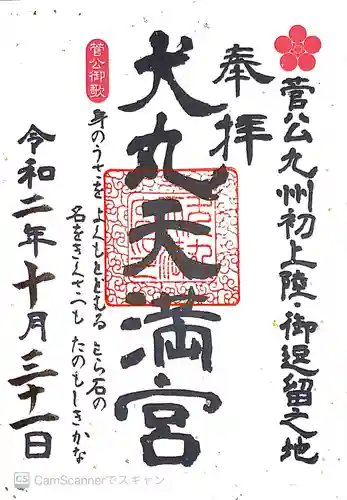 菅公九州初上陸・御逗留之地
奉拝
犬丸天満宮
菅公御歌
身のうさを よくもとどむる とら石の
名をきんさつも たのもしきかな
令和二年十月三十一日
CS CamScannerでスキャン